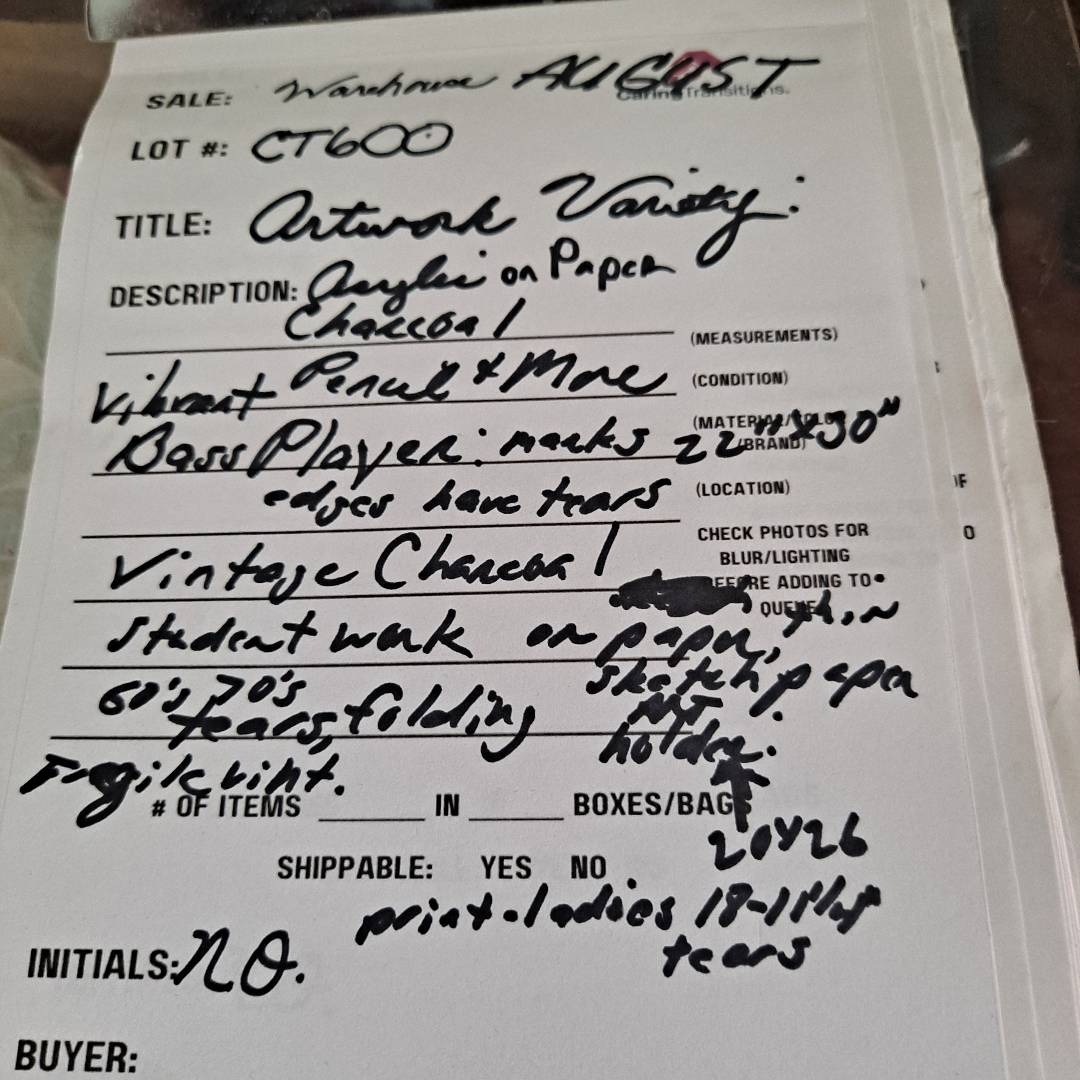 SALE: Warehouse AUGUST
Caring Transitions.
LOT #: CT600
TITLE: Artwork Variety:
DESCRIPTION: Acrylic on Paper
Charcoal
(MEASUREMENTS)
Vibrant Pencil & More
(CONDITION)
Bass Player: marks 22" x 30"
(MATERIAL/COLOR
/BRAND)
edges have tears
(LOCATION)
CHECK PHOTOS FOR
BLUR/LIGHTING
BEFORE ADDING TO
QUEUE
Vintage Charcoal
student work on paper, thin
sketch paper
60's 70's
tears, folding
ART
holder.
Fragile vint.
# OF ITEMS ______ IN ______ BOXES/BAGS
20x26
SHIPPABLE: YES NO
print-ladies 18-
tears
INITIALS: NO.
BUYER:
OF
O